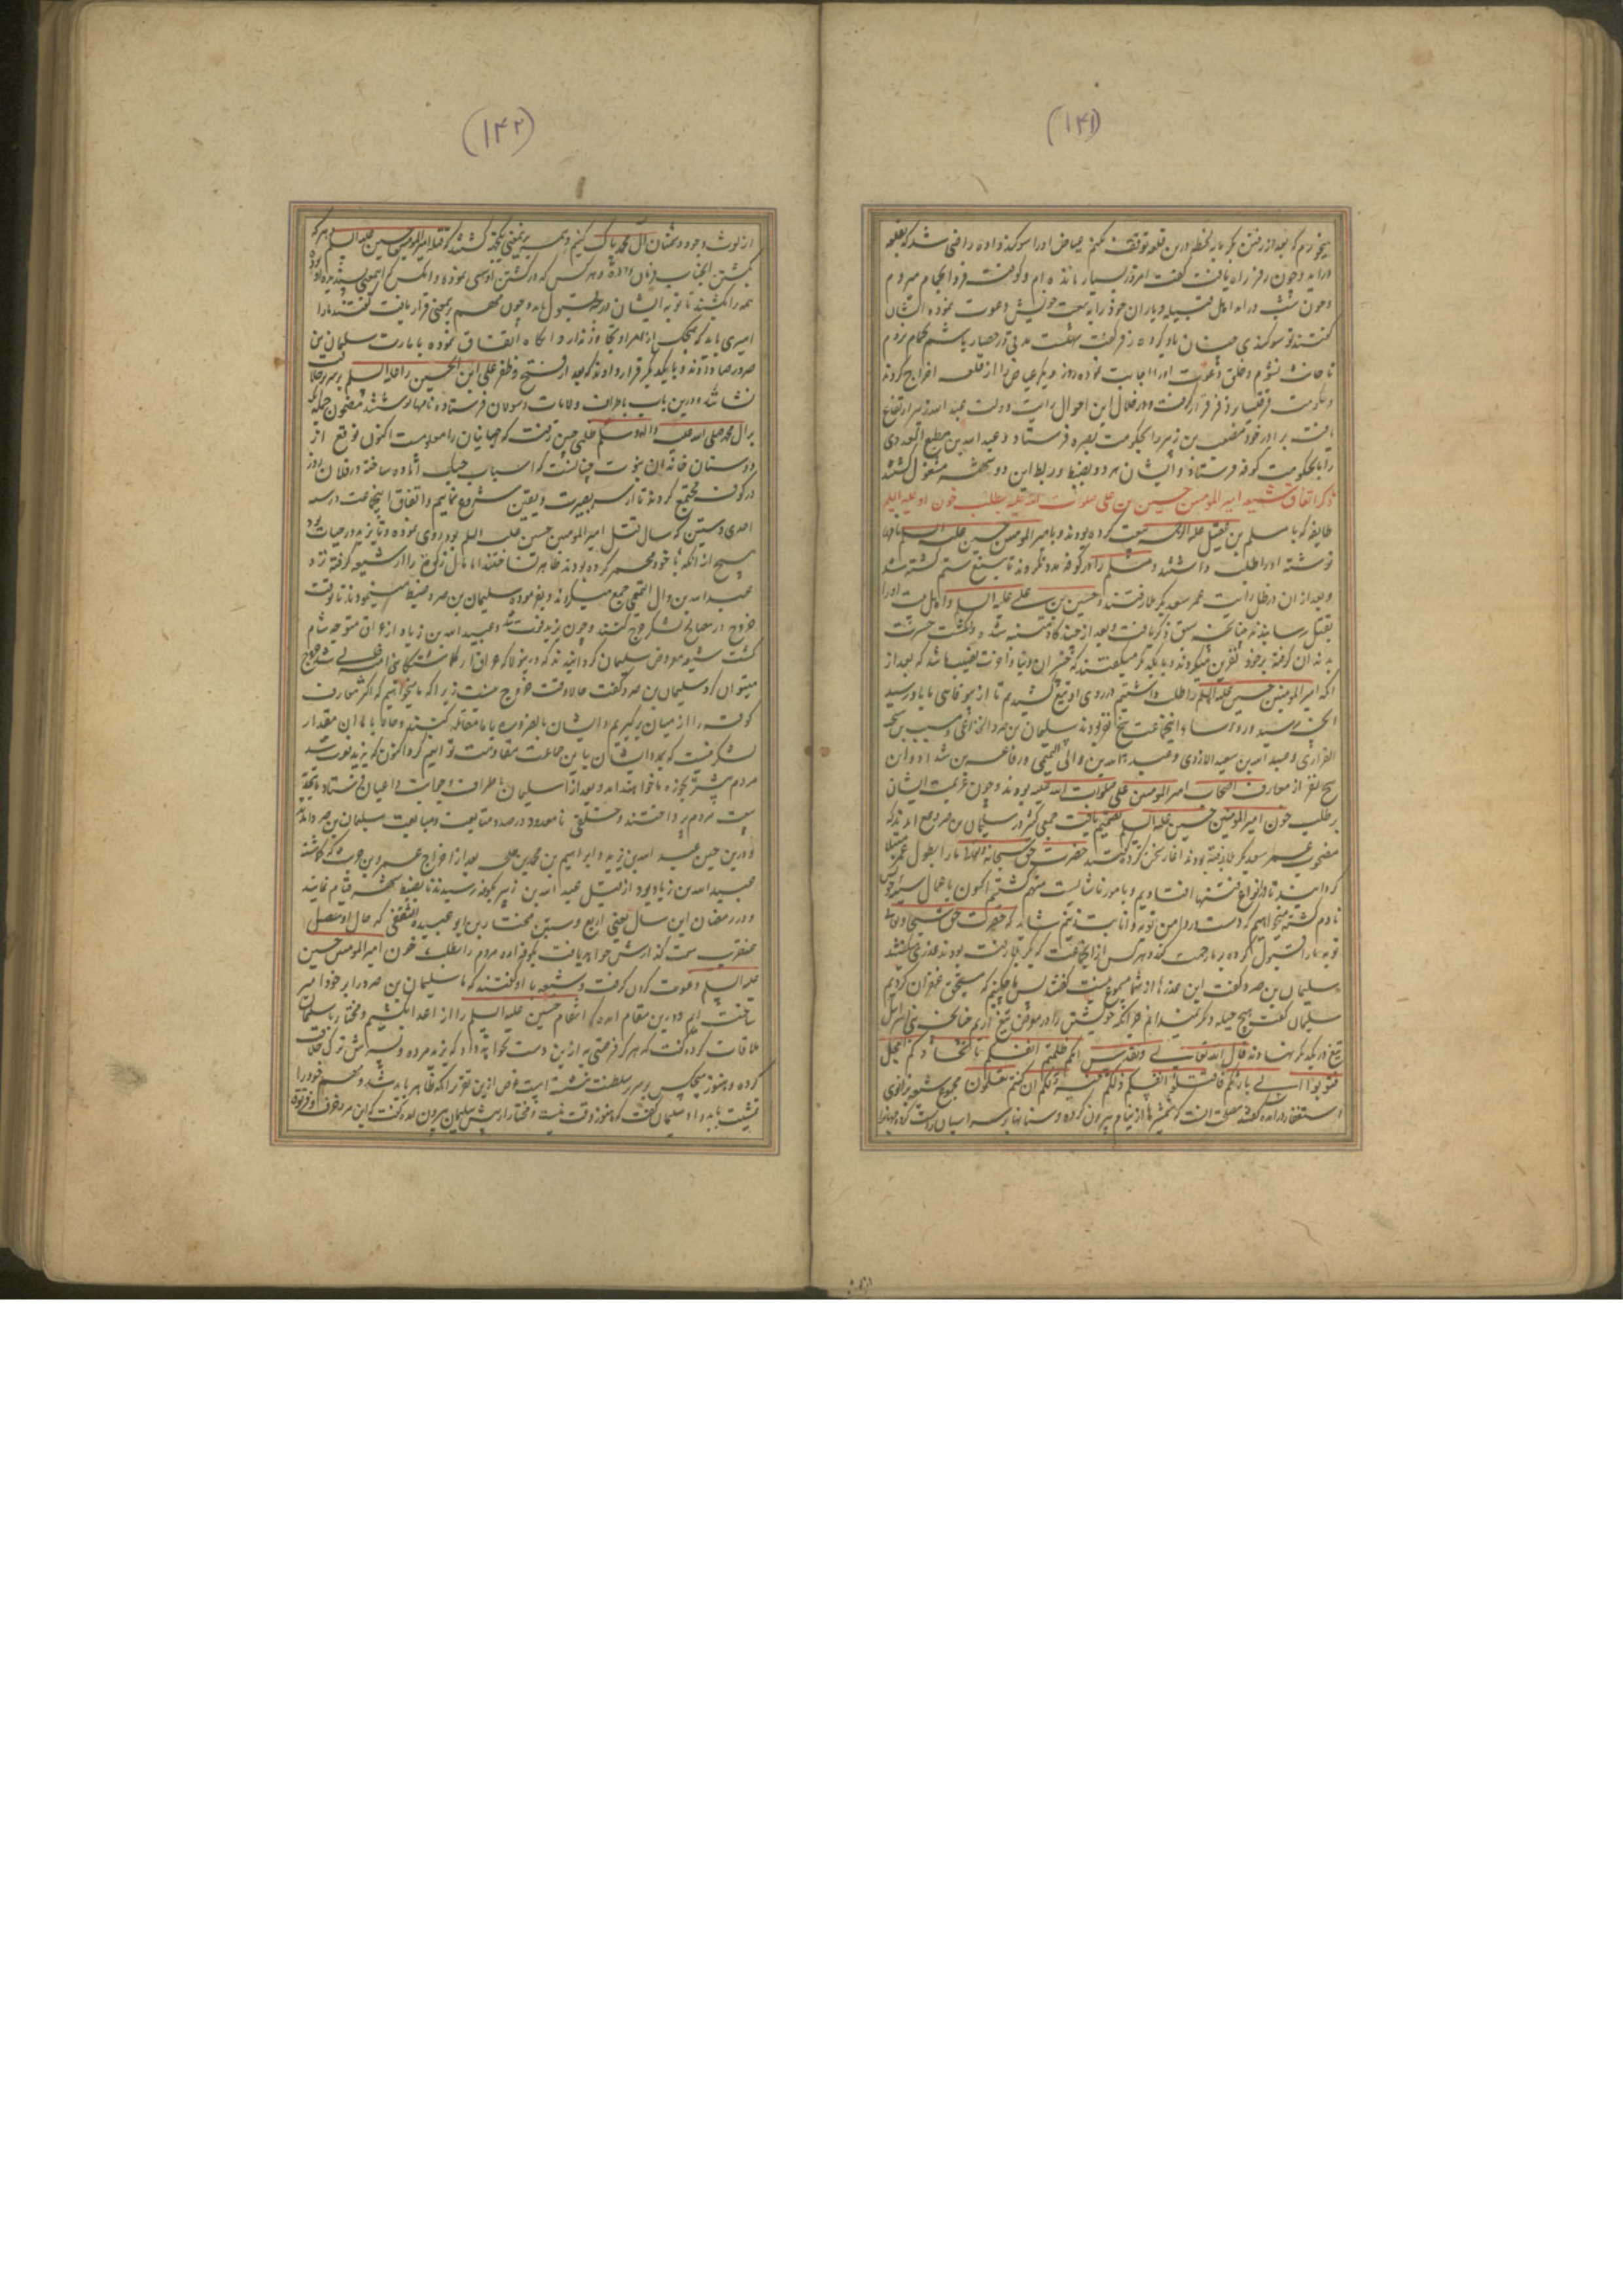 (۱۴۱)
میخورم که بعد از رفتن گرمابه لحظه درین قلعه توقف نکنم عیاض او را سوگند داده راضی شد که بقلعه
دراید و چون زفر راه یافت گفت امروز بسیار مانده‌ام و کوفت فردا بحمام میروم
و چون شب درامد اهل قبیله و یاران خود را به بیعت خویش دعوت نموده ایشان
گفتند تو سوگندی چنان یاد کرده زفر گفت سهلست مدتی در حصار باشم بحمام نروم
تا حانث نشوم و خلق دعوت او را اجابت نموده روز دیگر عیاض را از قلعه اخراج کردند
و حکومت قرقیسا بر زفر قرار گرفت و در خلال این احوال رایت دولت عبد الله زبیر ارتفاع
یافت برادر خود مصعب بن زبیر را بحکومت بصره فرستاد و عبد الله بن مطیع العدوی
را بحکومت کوفه فرستاد و ایشان هر دو بضبط و ربط این دو شهر مشغول گشتند
ذکر اتفاق شیعه امیر المومنین حسین بن علی صلوات الله علیه بطلب خون او علیه السلم
طایفه که با مسلم بن عقیل علیه الرحمه بیعت کرده بودند و بامیر المومنین حسین علیه السلم نامها
نوشته او را طلب داشتند و مسلم را در کوفه مدد نکردند تا به تیغ ستم کشته شد
و بعد از ان در ظل رایت عمر سعد بکربلا رفتند و حسین بن علی علیه السلم و اهل بیت او را
بقتل رسانیدند چنانچه سبق ذکر یافت و بعد از چند گاه متنبه شده و انگشت حسرت
بدندان گرفته بر خود نفرین میکردند و با یکدیگر میگفتند که خسران دنیا و آخرت نصیب ما شد که بعد از
انکه امیر المومنین حسین علیه السلم را طلب داشتیم در روی او تیغ کشیدیم تا از بیوفایی ما باو رسید
انچه رسید و روسا و اینجماعت پنج نفر بودند سلیمان بن صرد الخزاعی و مسیب بن نجبه
الفزاری و عبد الله بن سعید الازدی و عبد الله بن والی التمیمی و رفاعه بن شداد و این
پنج نفر از معارف اصحاب امیر المومنین علی صلوات الله علیه بودند و چون عزیمت ایشان
بر طلب خون امیر المومنین حسین علیه السلم تصمیم یافت جمعی کثیر در سلیمان بن صرد جمع امدند که
مصحوب عمر سعد بکربلا رفته بودند اغاز سخن کرده گفتند حضرت حق سبحانه و تعالی ما را بطول عمر مبتلا
گردانید تا در انواع فتنها افتادیم و بامور ناشایست متهم گشتیم اکنون باعمال سیئه خود
نادم گشته میخواهیم که دست در دامن توبه و انابت زنیم شاید که حضرت حق سبحانه و تعالی
توبه ما را قبول کرده بر ما رحمت کند و هر کس از اینجماعت که بکربلا رفت بودند عذری میگفتند
سلیمان بن صرد گفت این عذرها از شما مسموع نیست گفتند پس ما چکنیم که مستحق غفران گردیم
سلیمان گفت هیچ حیله دیگر نمیدانم جز انکه خویشتن را در معرض تیغ اریم چنانچه بنی اسرائیل
تیغ در یکدیگر نهادند قال الله تعالی انکم ظلمتم انفسکم باتخاذکم العجل
فتوبوا الی بارئکم فاقتلوا انفسکم ذلکم خیر لکم ان کنتم تعلمون مجموع شیعه بزانوی
استغفار درامده گفتند مصلحت انست که شمشیرها از نیام بیرون کرده و سنانها بر سر
(۱۴۲)
از لوث وجود دشمنان آل محمد پاک کنیم و همه برینمعنی یکجهت گشتند که قتله امیر المومنین حسین علیه السلم و هر که
بکشتن انجناب فرمان داده و هر کس که در کشتن او سعی نموده و انکس که بمعنی پسندیده بود
همه را بکشند تا توبه ایشان درجه قبول یابد و چون مهم بر ینمعنی قرار یافت گفتند ما را
امیری باید که هیچکس از امر او تجاوز ندارد انگاه اتفاق نموده بامارت سلیمان بن
صرد رضا دادند و با یکدیگر قرار دادند که بعد از فتح و ظفر علی ابن الحسین را علیه السلم بر سریر خلافت
نشانند و درین باب باطراف ولایات رسولان فرستاده نامها نوشتند مضمون جمله انکه
بر آل محمد صلی الله علیه واله وسلم ظلمی چنین رفت که جهانیان را معلومست اکنون توقع از
دوستان خاندان نبوت چنانست که اسباب جنک اماده ساخته در فلان روز
در کوفه مجتمع گردند تا از سر بصیرت و یقین شروع نماییم و اتفاق اینجماعت در سنه
احدی و ستین که سال قتل امیر المومنین حسین علیه السلم بود روی نموده و تا یزید در حیات بود
هیچ از انکه با خود مخمر کرده بودند ظاهر نساختند اما مال زکوة را از شیعه گرفته نزد
عبد الله بن وال التمیمی جمع میکردند و بفرموده سلیمان بن صرد ضبط مینمودند تا وقت
خروج در مصالح لشکر خرج کنند و چون یزید فوت شد و عبید الله بن زیاد از عراق متوجه شام
گشت شیعه معروض سلیمان گردانیدند که درینولا که عراق از گماشتگان بنی امیه خالی شد خروج
میتوان کرد سلیمان بن صرد گفت حالا وقت خروج نیست زیرا که ما میخواهیم که اکثر معارف
کوفه را از میان برگیریم و ایشان بالضروره با ما مقاتله کنند و ما را حالا ان مقدار
لشکر نیست که بمدد ایشان با این جماعت مقاومت توانیم کرد اکنون که یزید فوت شد
مردم بیشتر بجزه ما خواهند امد و بعد از ان سلیمان باطراف و جوانب داعیان فرستاد تا بجهة
بیعت مردم پرداختند و خلقی نامعدود در صدد متابعت و مبایعت سلیمان بن صرد امدند
و درین حین عبد الله بن زید و ابراهیم بن محمد بن طلحه بعد از اخراج عمرو بن حریث که گماشته
عبید الله بن زیاد بود از قبل عبد الله بن زبیر بکوفه رسیدند تا بضبط شهر قیام نمایند
و در رمضان این سال یعنی اربع و ستین مختار بن ابو عبیده الثقفی که حال او مفصل
عنقریب سمت گذارش خواهد یافت بکوفه امده مردم را بطلب خون امیر المومنین حسین
علیه السلم دعوت کردن گرفت و شیعه با او گفتند که ما سلیمان بن صرد را بر خود امیر
ساخته‌ایم و درین مقام امده که انتقام حسین علیه السلم را از اعدا بکشیم و مختار با سلیمان
ملاقات کرده گفت که هرگز فرصتی به ازین دست نخواهد داد که یزید مرده و پسرش ترک خلافت
کرده و هنوز هیچکس بر سریر سلطنت ننشسته است غرض ازین تقریر انکه ظاهر باید شد و مهم خود را
تمشیت باید داد سلیمان گفت که هنوز وقت نیست و مختار از پیش سلیمان بیرون امده گفت که این مرد خرف و فرتوت